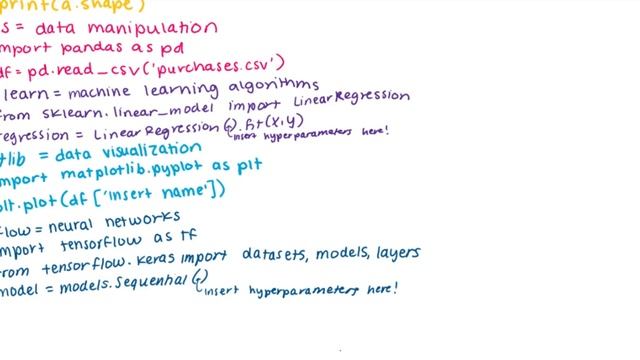 print(a.shape)
s = data manipulation
mport pandas as pd
df = pd.read_csv('purchases.csv')
learn = machine learning algorithms
rom sklearn.linear_model import LinearRegression
regression = LinearRegression().fit(x,y)
insert hyperparameters here!
tlib = data visualization
mport matplotlib.pyplot as plt
plt.plot(df['insert name'])
flow = neural networks
mport tensorflow as tf
rom tensorflow.keras import datasets, models, layers
model = models.Sequential()
insert hyperparameters here!